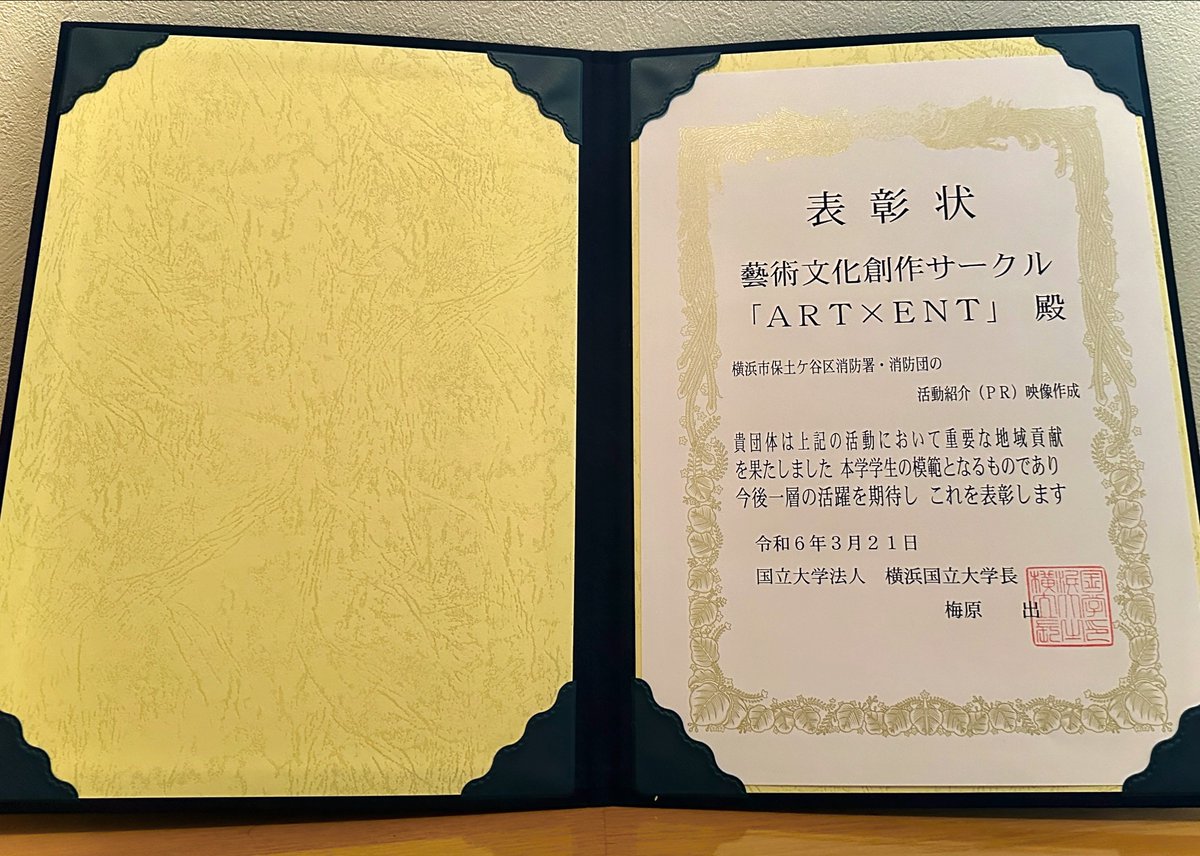 表彰状
藝術文化創作サークル
「ＡＲＴ×ＥＮＴ」　殿
横浜市保土ケ谷区消防署・消防団の
活動紹介（ＰＲ）映像作成
貴団体は上記の活動において重要な地域貢献
を果たしました 本学学生の模範となるものであり
今後一層の活躍を期待し これを表彰します
令和６年３月２１日
国立大学法人　横浜国立大学長
梅原　出